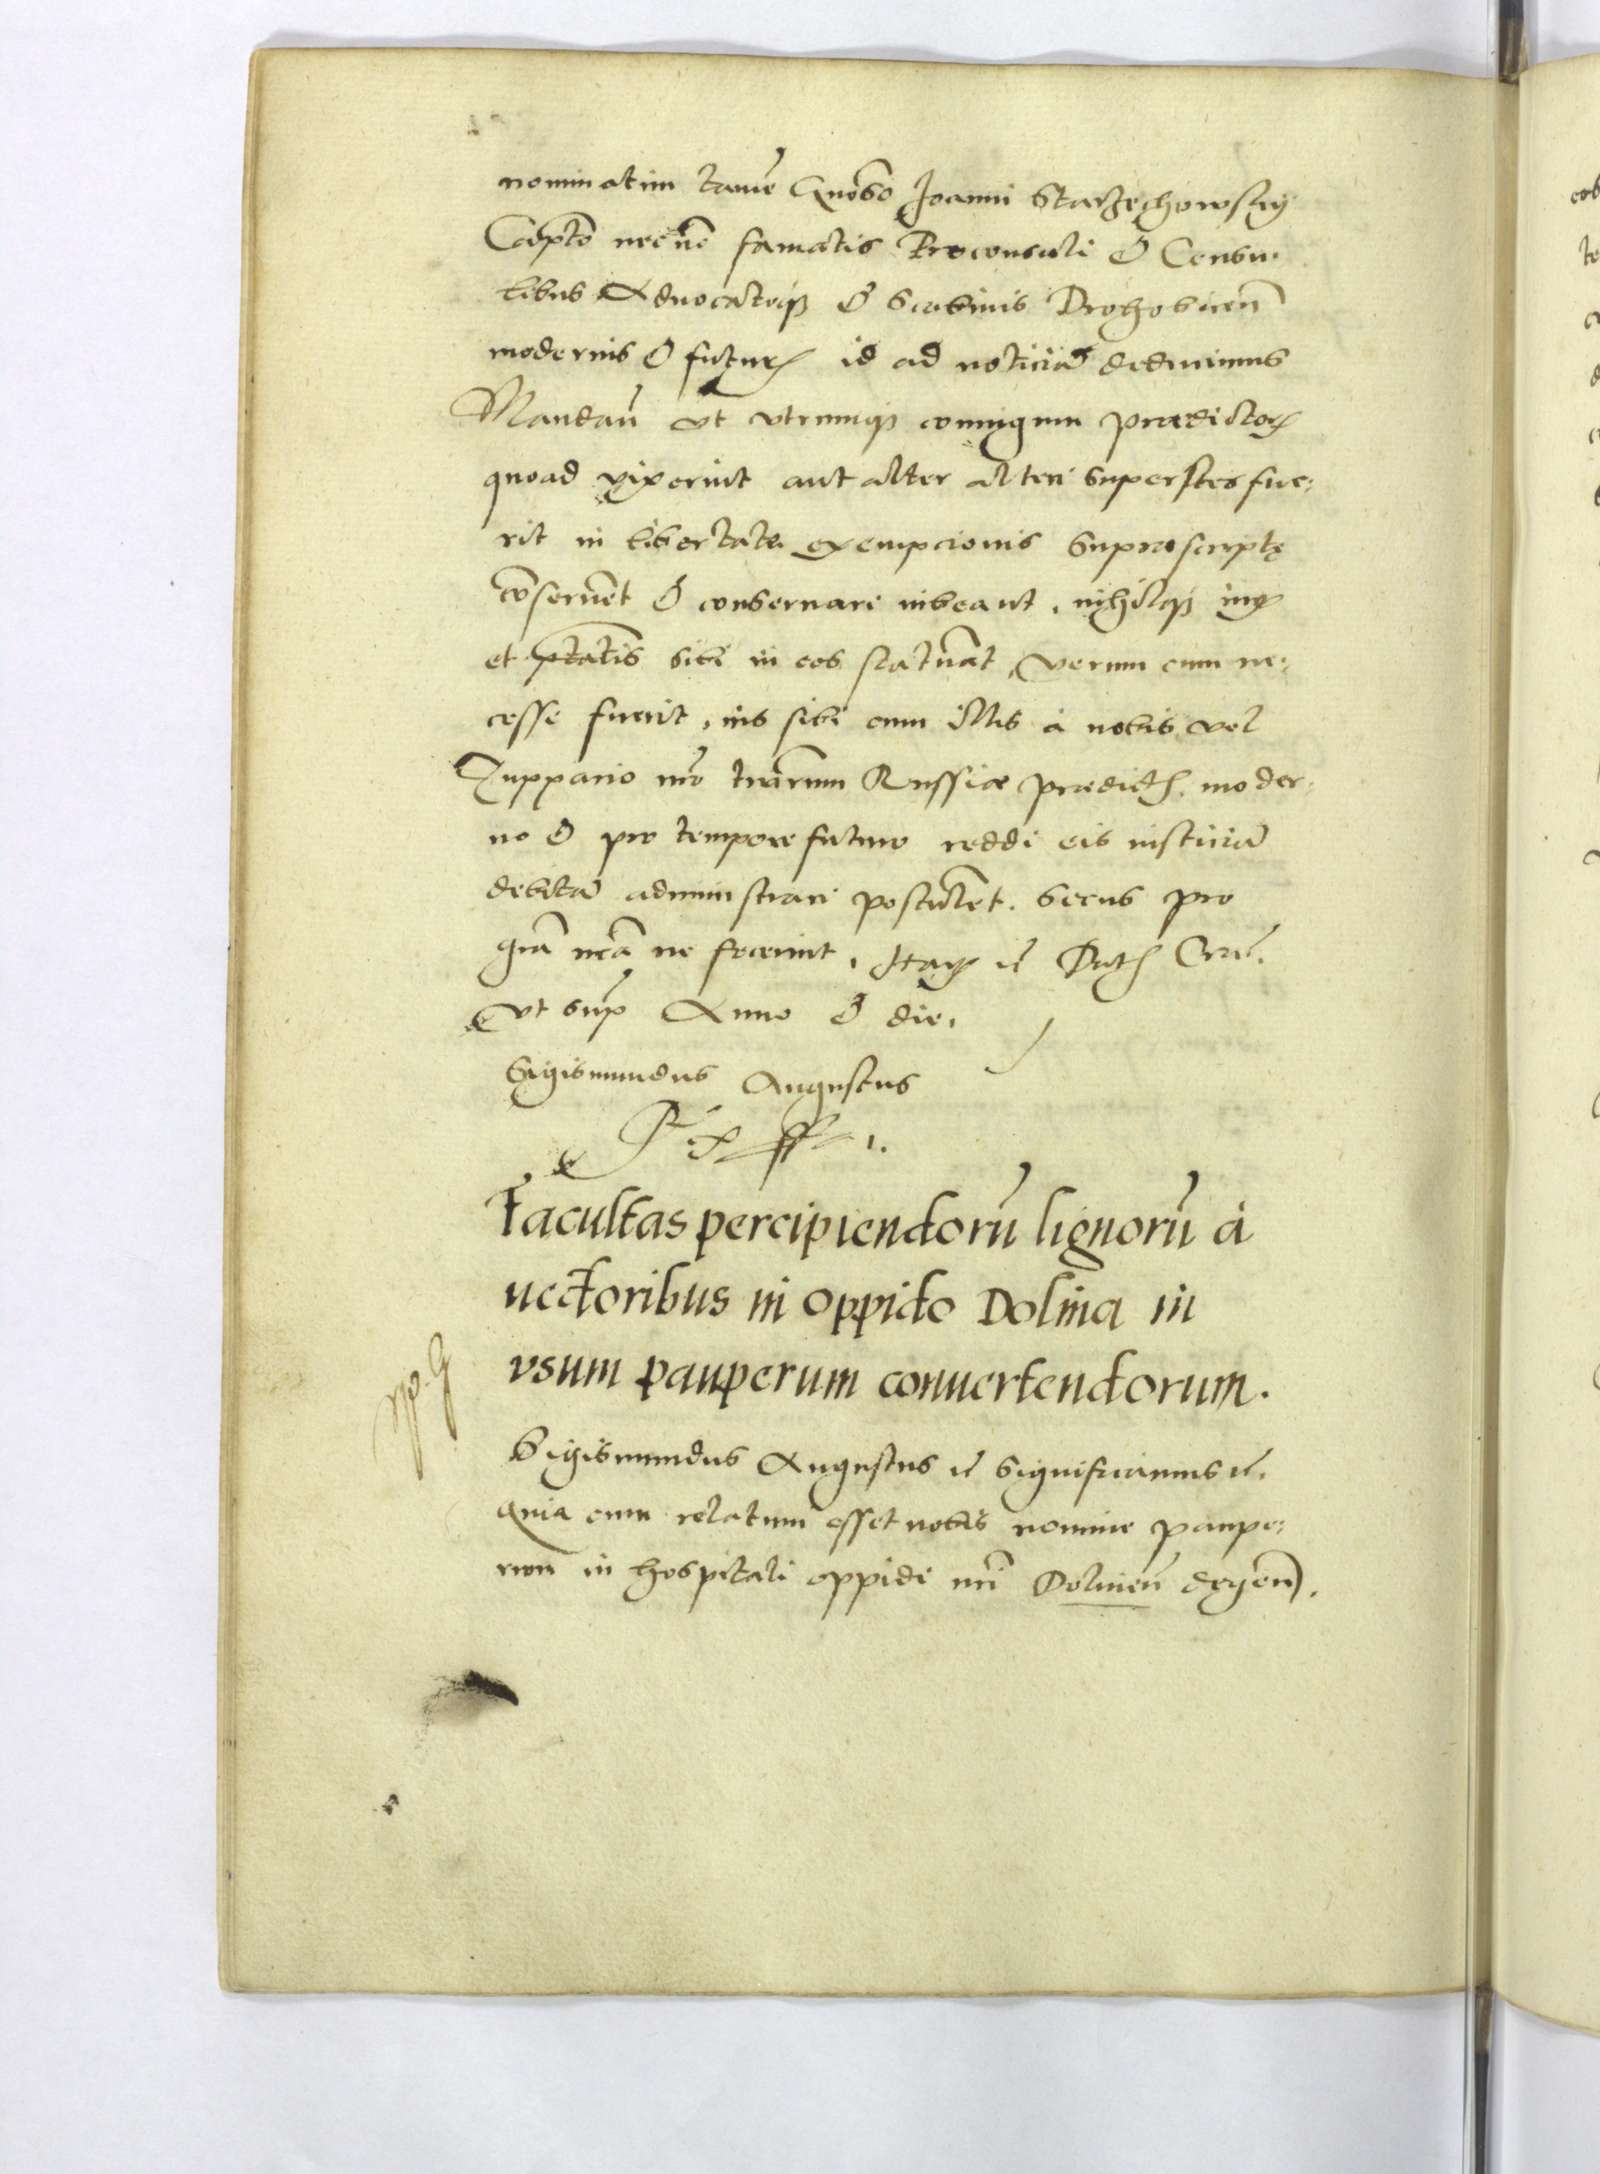 nominatim tamē Gnōso Joanni Starzechowsky
Capto necnō famatis Proconsuli & Consu-
libus Aduocatoq3 & Scabinis Drohobicen̄
modernis & futur id ad noticiā deducimus
Mandan̄ vt vtrumq3 coniugum prædictor
quoad vixerint aut alter alteri superstes fue-
rit in libertate exempcionis suprascriptę
cōseruēt & conseruari iubeant, nihilq3 iur
et ptatis sibi in eos statuāt, verum cum ne-
cesse fuerit, ius sibi cum illis à nobis vel
Zuppario nrō terrarum Russiæ prædict. moder-
no & pro tempore futuro reddi eis iusticiā
debitā administrari postulēt. Secus pro
grā nrā ne fecerint, Harz ić Dat Crać.
vt sup̄ Anno & die,
Sigismundus Augustus
Rex ss.
Facultas percipiendorū lignorū à
uectoribus in oppido Dolina in
vsum pauperum conuertendorum.
Sigismundus Augustus ić Significamus ić.
Quia cum relatum esset nobis nomine paupe-
rum in hospitali oppidi nrī Dolinen̄ degen̄.